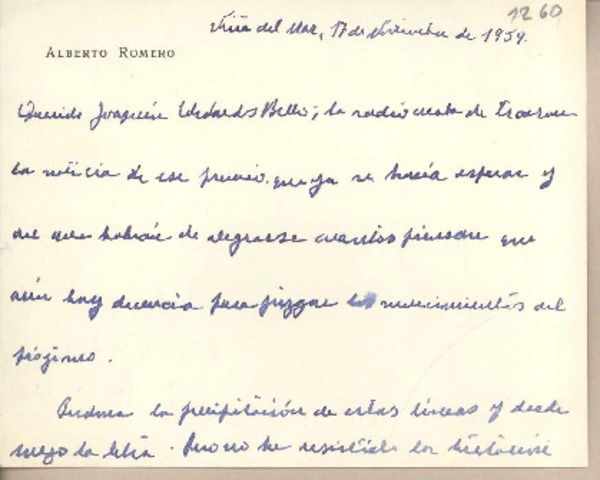 1260
Viña del Mar, 17 de Noviembre de 1959.
ALBERTO ROMERO
Querido Joaquín Edwards Bello; la radio acaba de
la noticia de ese premio que ya se hacía esperar y
del que habrán de alegrarse cuantos piensan que
aún hay decencia para juzgar los merecimientos del
prójimo.
Perdona la precipitación de estas líneas y desde
luego la letra. Pero no he resistido la tentación